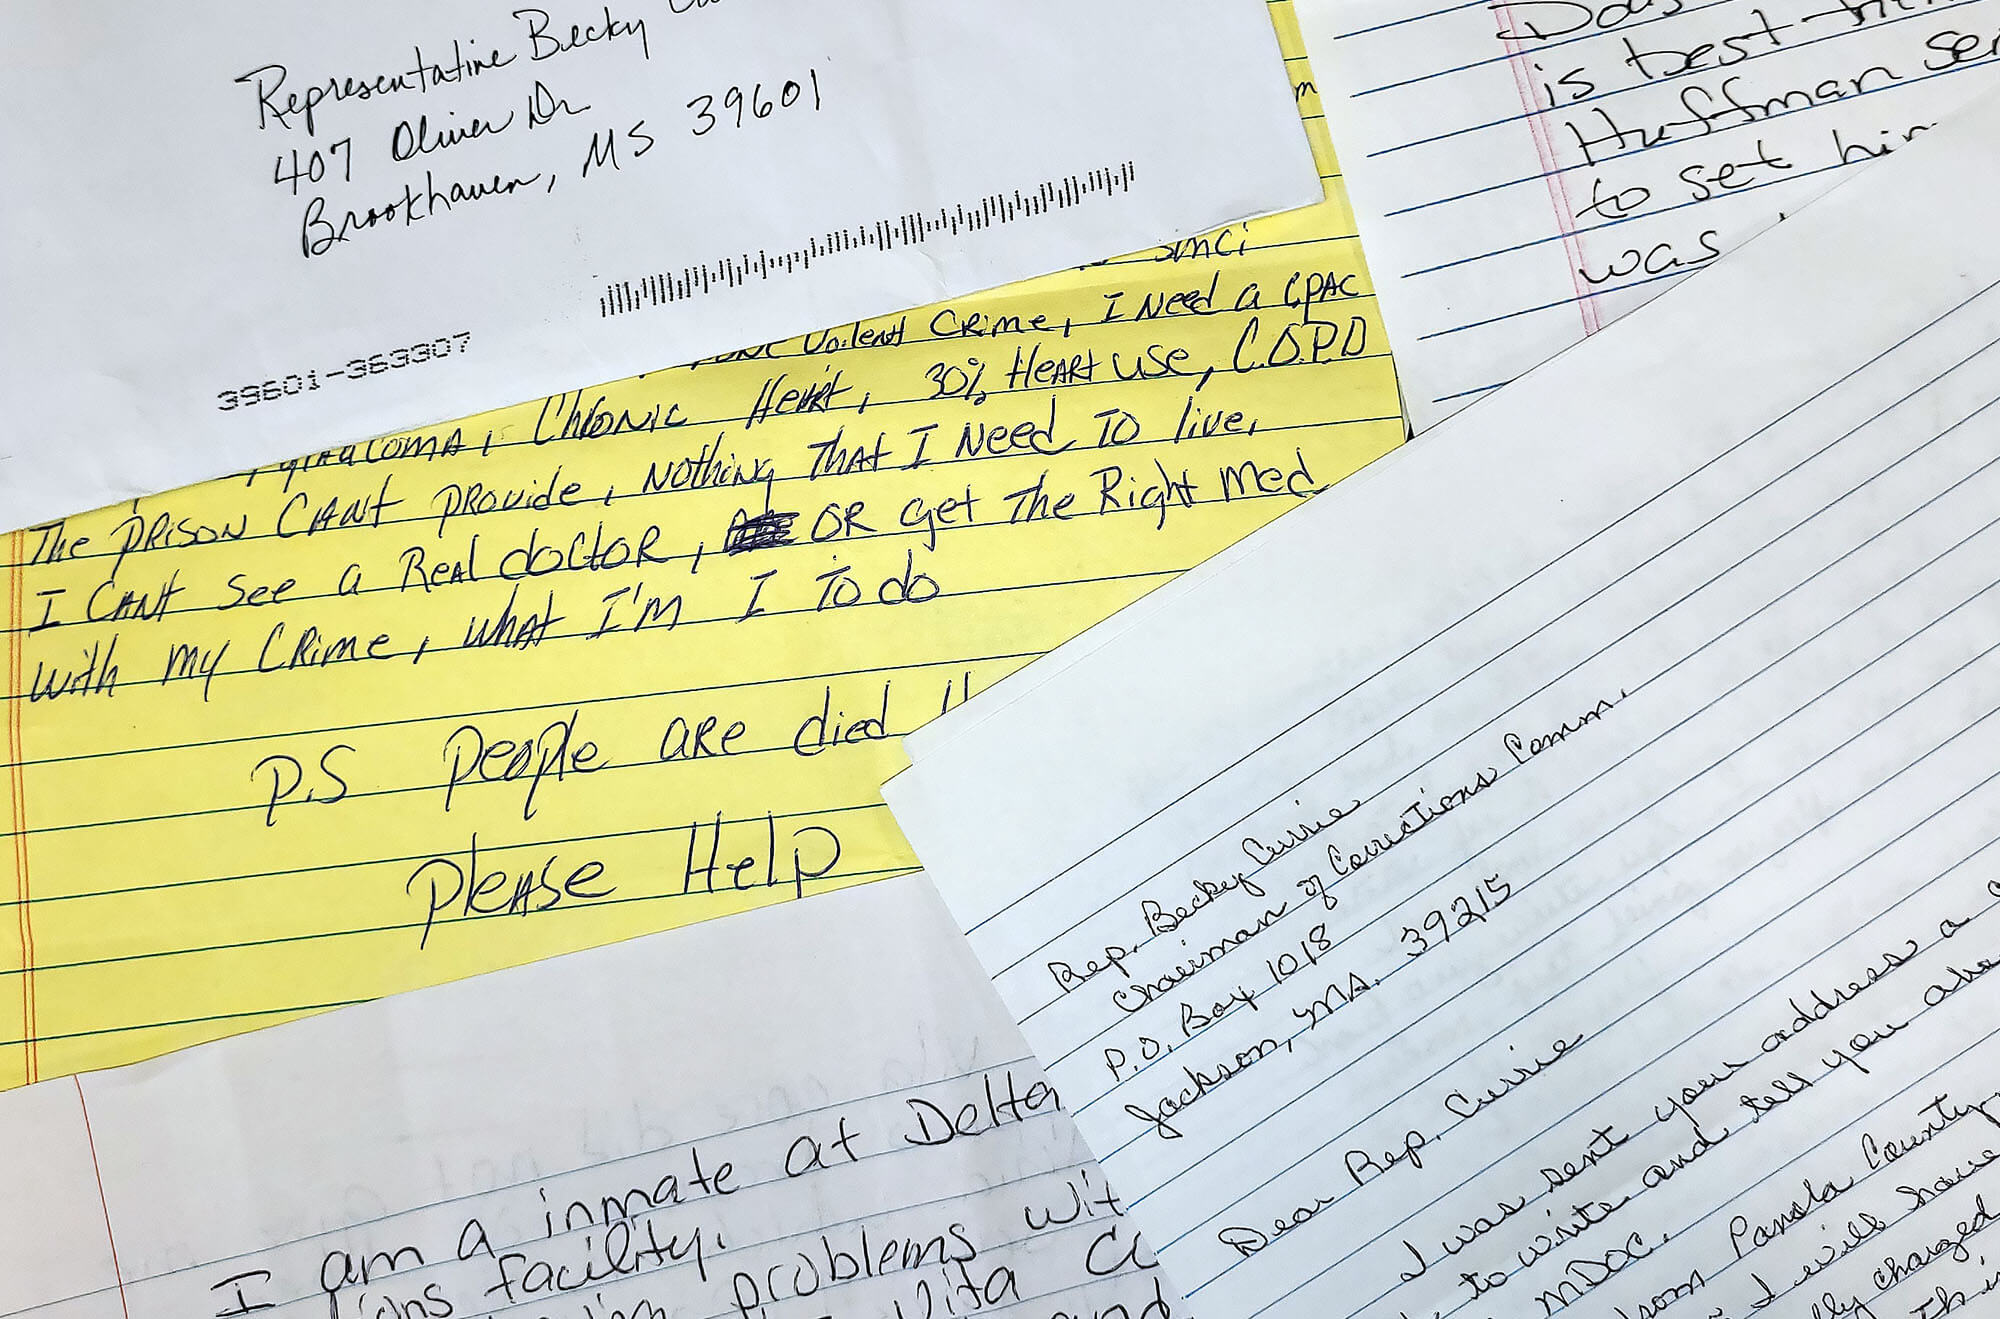 Representative Becky
407 Oliver Dr
Brookhaven, MS 39601
39601-363307
m
Violent Crime, I Need a CPAC
glaucoma, Chronic Heart, 30% Heart use, C.O.P.D
The prison Can't provide, nothing That I Need To live.
I Can't see a Real doctor, OR get The Right Med
with my Crime, what I'm I To do
P.S people are died !!
please Help
is best
Huffman
to set him
was
Rep. Becky Currie
Chairman of Corrections Comm.
P.O. Box 1018
Jackson, MA. 39215
Dear Rep. Currie
I was sent your address a
to write and tell you
MDOC.
Panola County
I will have
charged
I am a inmate at Delta
facility.
problems wit
Vita